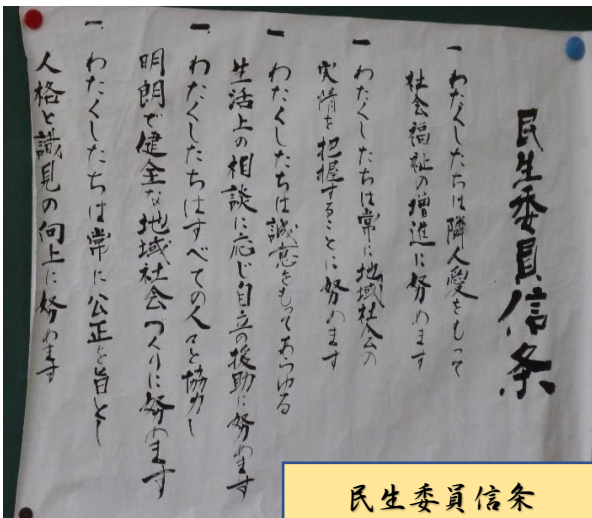 民生委員信条
一 わたくしたちは隣人愛をもって
社会福祉の増進に努めます
一 わたくしたちは常に地域社会の
実情を把握することに努めます
一 わたくしたちは誠意をもってあらゆる
生活上の相談に応じ自立の援助に努めます
一 わたくしたちはすべての人々と協力し
明朗で健全な地域社会づくりに努めます
一 わたくしたちは常に公正を旨とし
人格と識見の向上に努めます
民生委員信条